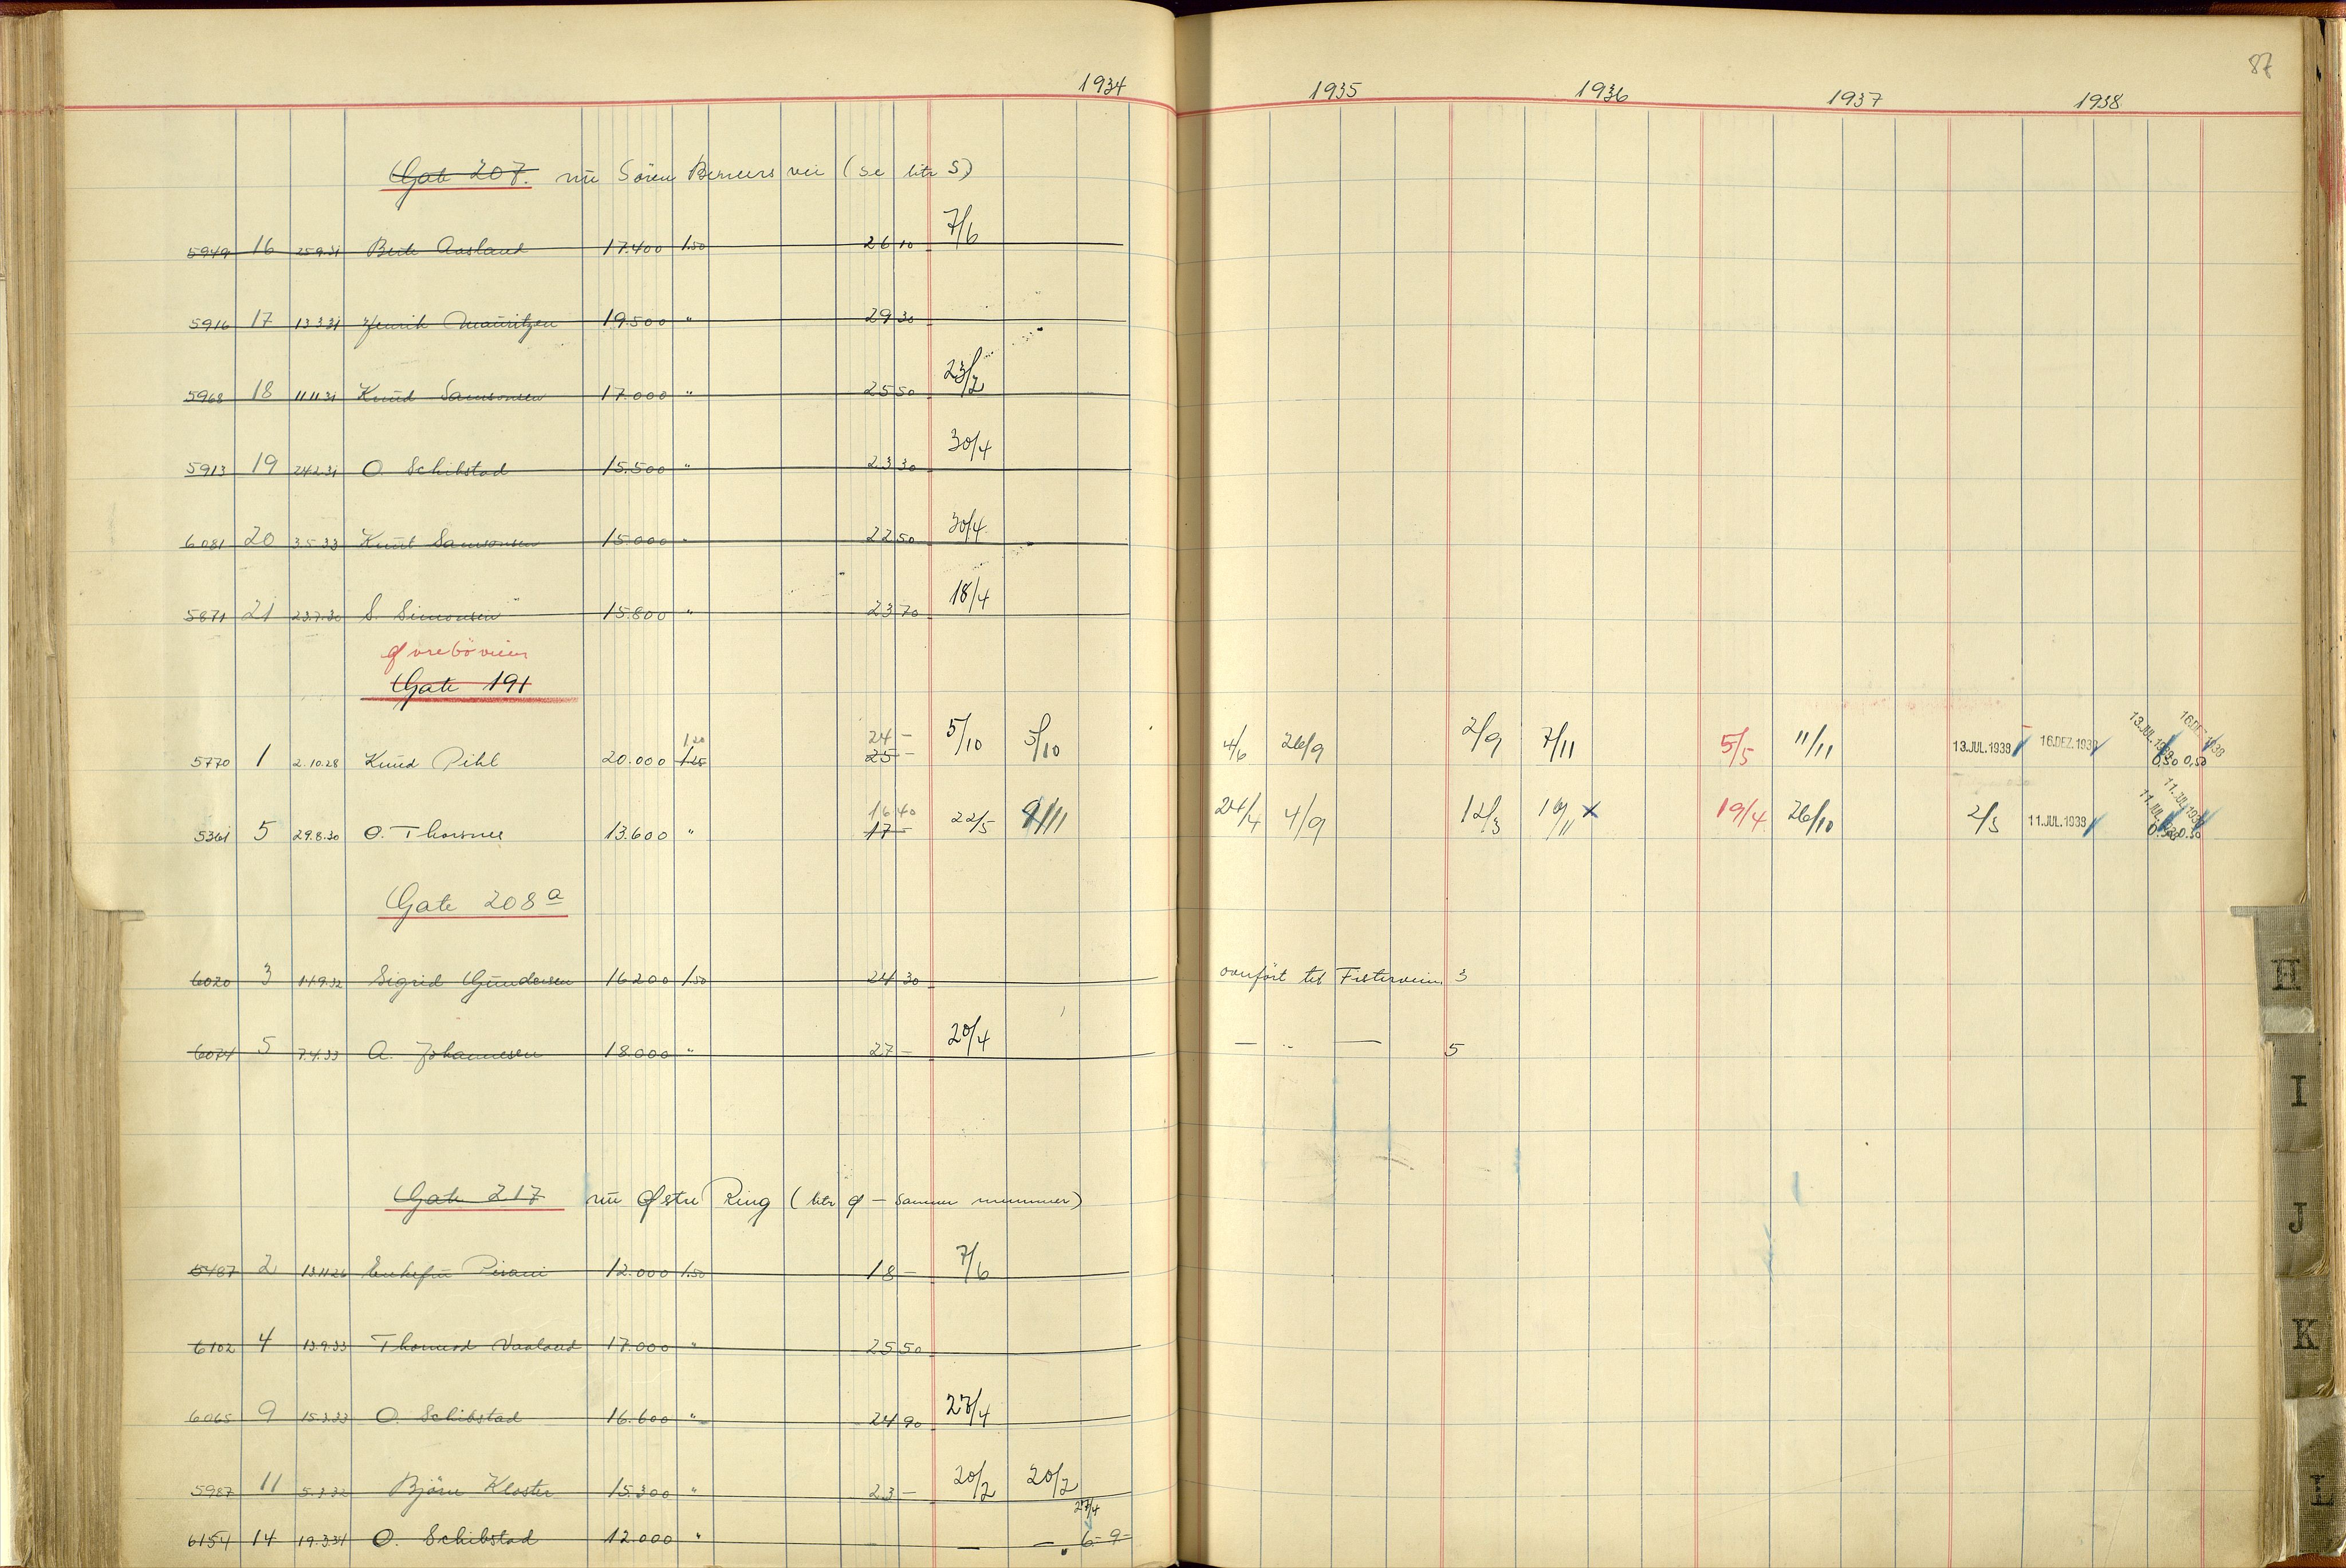 1934 1935 1936 1937 1938 87
Gate 207. nu Sören Berners vei (se litr S)
5949 16 25.9.31 Berte Aasland 17.400 1.50 26 10 7/6
5916 17 13.3.31 Henrik Mauritzen 19.500 " 29 30
5968 18 11.11.31 Knud Samsonsen 17.000 " 25 50 23/2
5913 19 24.2.31 O. Schibstad 15.500 " 23 30 30/4
6081 20 3.5.33 Knut Samsonsen 15.000 " 22 50 30/4
5871 21 23.7.30 S. Simonsen 15.800 " 23 70 18/4
Øvreböveien
Gate 191
1.20 24 –
5770 1 2.10.28 Knud Pihl 20.000 1.25 25 – 5/10 5/10 4/6 26/9 2/9 7/11 5/5 11/11 13.JUL.1939 16.DEZ.1939 13.JUL.1939 16.DEZ.1939 0,50 0,50
16 40
5361 5 29.8.30 O. Thorsnes 13.600 " 17 – 22/5 9/11 24/4 4/9 12/3 10/11 x 19/4 26/10 2/5 11.JUL.1939 11.JUL.1939 11.JUL.1939 0.50
Gate 208 a
6020 3 14.9.32 Sigrid Gundersen 16.200 1.50 24 30 overfört til Fisterveien 3
6074 5 7.4.33 A. Johannesen 18.000 " 27 – 20/4 — " — 5
Gate 217 nu Østre Ring (litr Ø – samme nummer)
5487 2 13.11.26 Enkefru Pirani 12.000 1.50 18 – 7/6
6102 4 13.9.33 Thormod Vaaland 17.000 " 25 50
6065 9 15.3.33 O. Schibstad 16.600 " 24 90 27/4
5987 11 5.3.32 Björn Kloster 15.300 " 23 – 20/2 20/2
27/4
6154 14 19.3.34 O. Schibstad 12.000 " — — 6– 9–
H
I
J
K
L